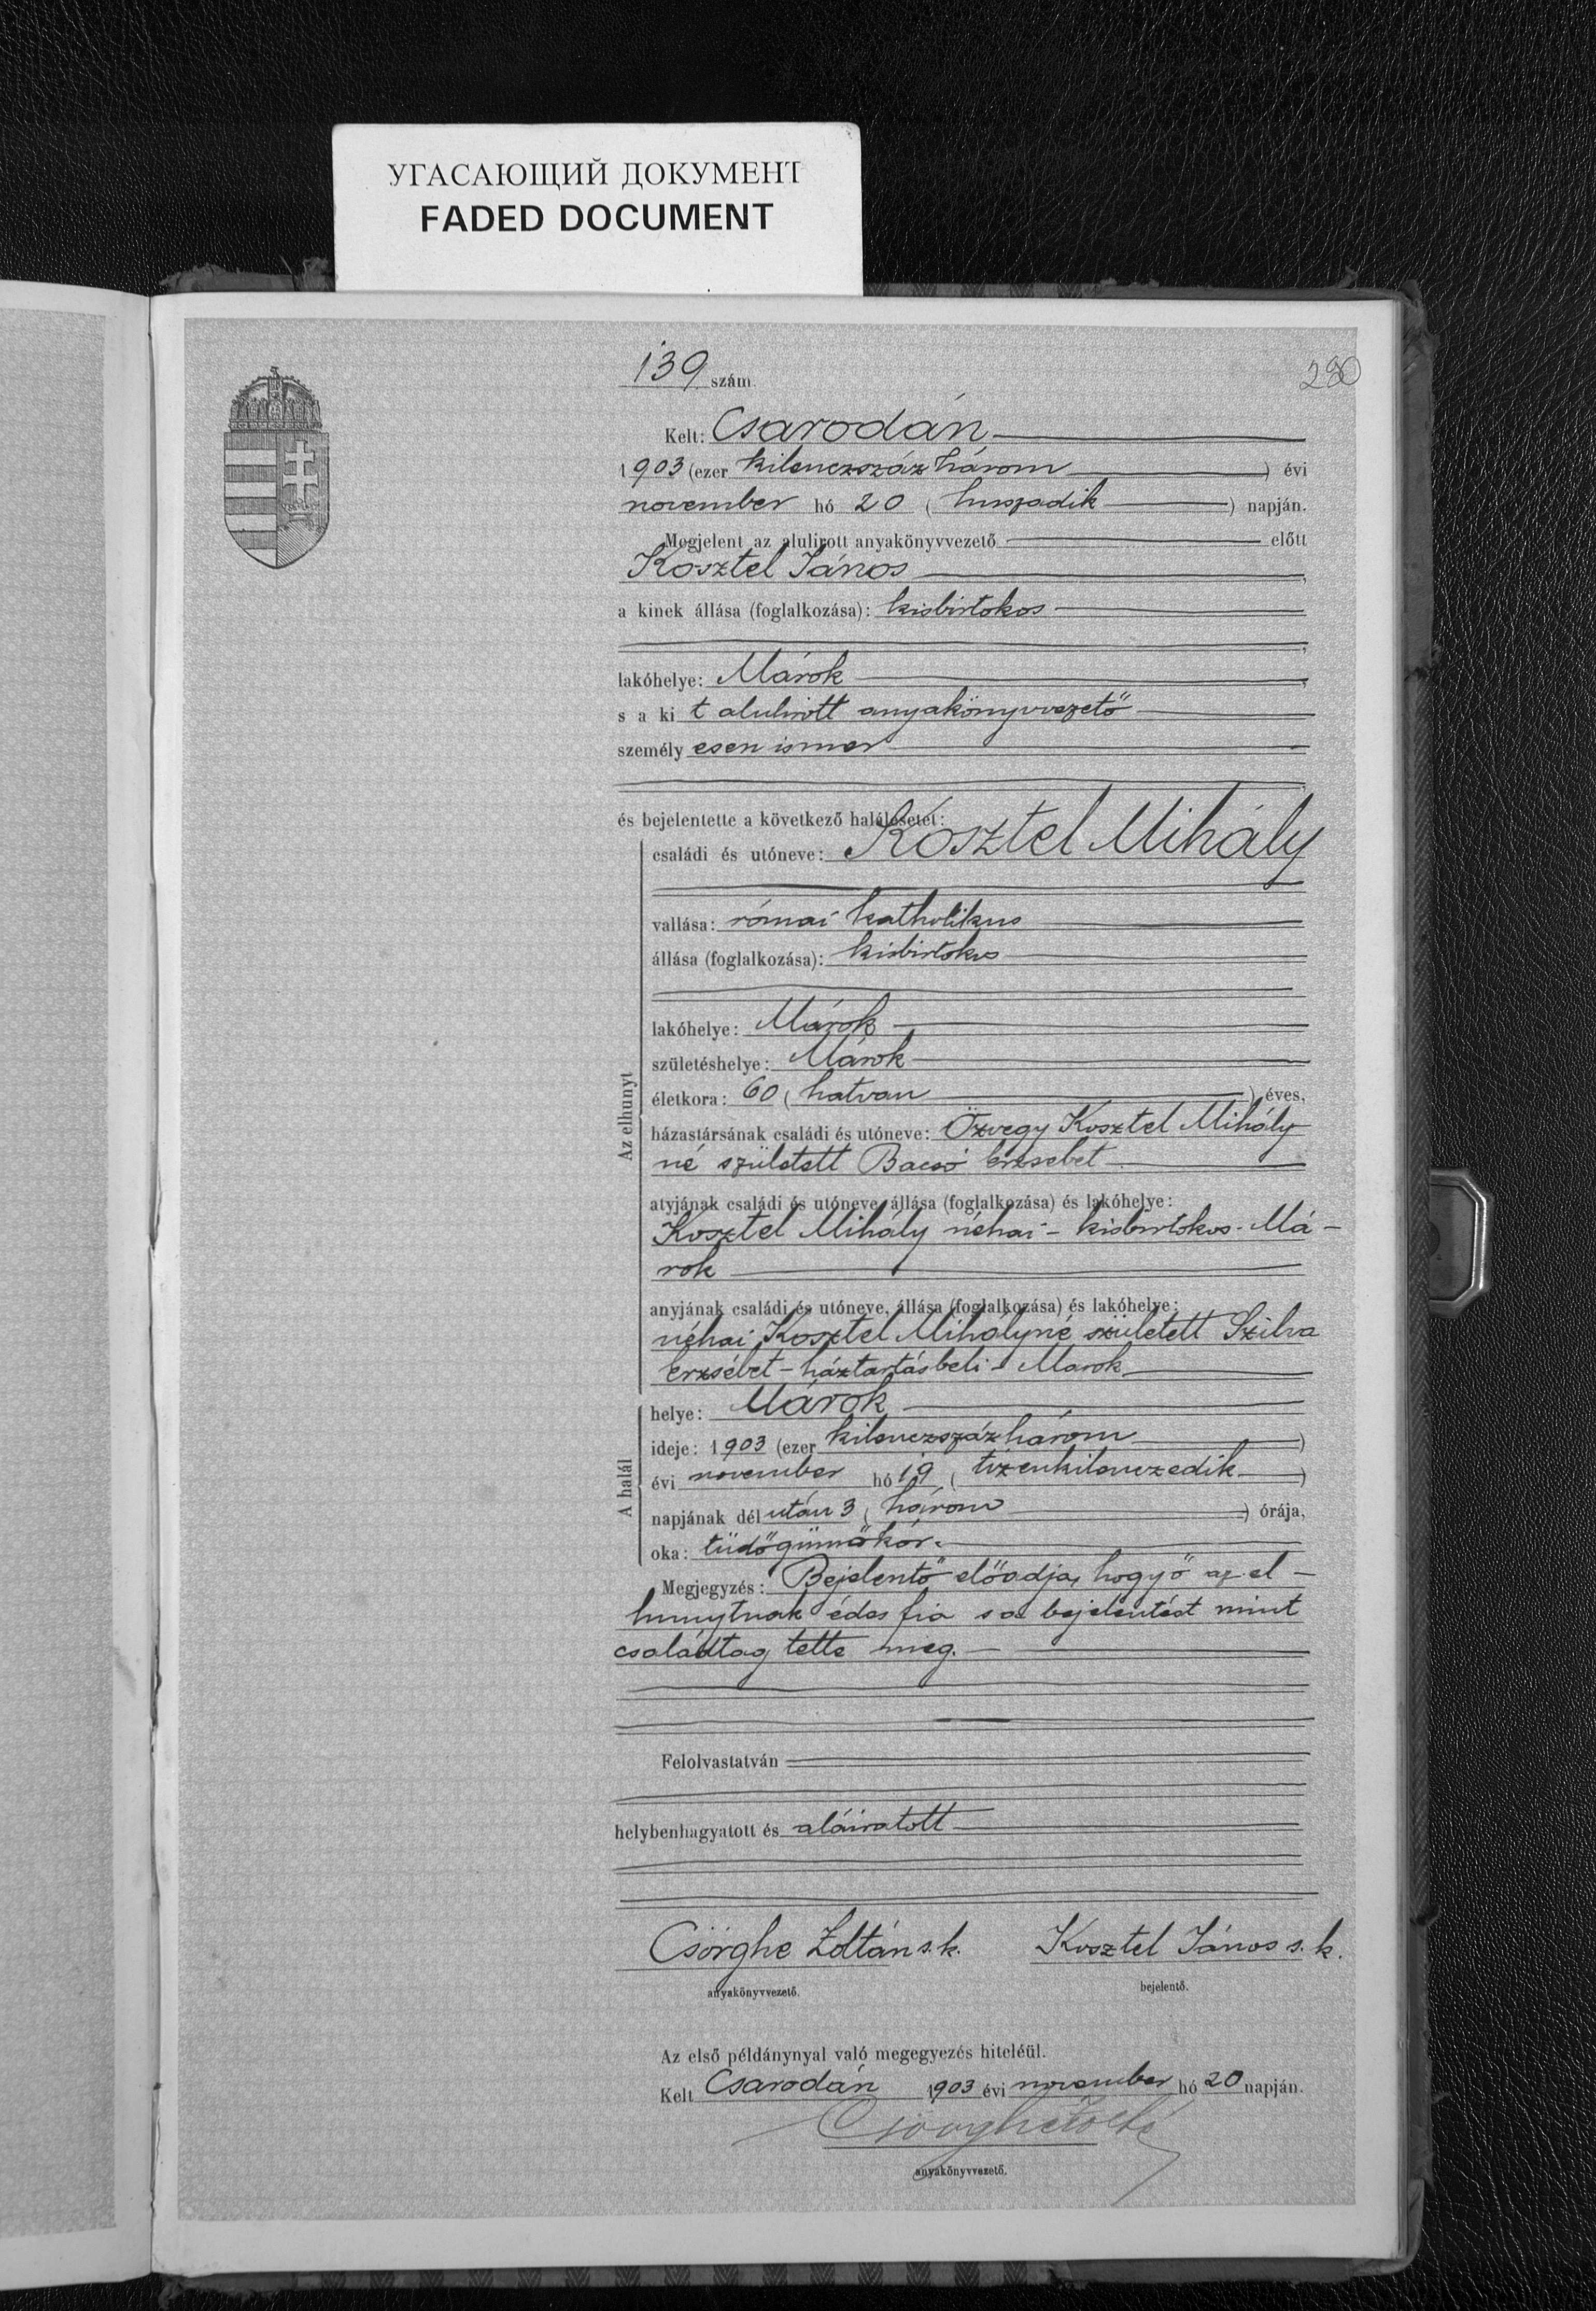 УГАСАЮЩИЙ ДОКУМЕНТ
FADED DOCUMENT
139 szám.
280
Kelt: Csarodán
1903 (ezer kilenczszáz három) évi
november hó 20 (huszadik) napján.
Megjelent az alulirott anyakönyvvezető előtt
Kosztel János,
a kinek állása (foglalkozása): kisbirtokos
lakóhelye: Márok,
s a ki t alulirott anyakönyvvezető
személy esen ismer
és bejelentette a következő halálesetet:
Az elhunyt
családi és utóneve: Kosztel Mihály
vallása: római katholikus
állása (foglalkozása): kisbirtokos
lakóhelye: Márok
születéshelye: Márok
életkora: 60 (hatvan) éves,
házastársának családi és utóneve: Özvegy Kosztel Mihály
né született Bacsó Erzsebet
atyjának családi és utóneve, állása (foglalkozása) és lakóhelye:
Kosztel Mihály néhai - kisbirtokos - Má-
rok
anyjának családi és utóneve, állása (foglalkozása) és lakóhelye:
néhai Kosztel Mihályné született Szilva
Erzsébet - háztartásbeli - Marok
A halál
helye: Márok
ideje: 1903 (ezer kilenczszázhárom)
évi november hó 19 (tizenkilenczedik)
napjának dél után 3 (három) órája,
oka: tüdőgümőkór.
Megjegyzés: Bejelentő előadja, hogy ő az el-
hunytnak édes fia s a bejelentést mint
családtag tette meg.
Felolvastatván
helybenhagyatott és aláiratott
Csörghe Zoltán s.k. Kosztel János s.k.
anyakönyvvezető. bejelentő.
Az első példánynyal való megegyezés hiteléül.
Kelt Csarodán 1903 évi november hó 20 napján.
Csörghe Zoltá
anyakönyvvezető.